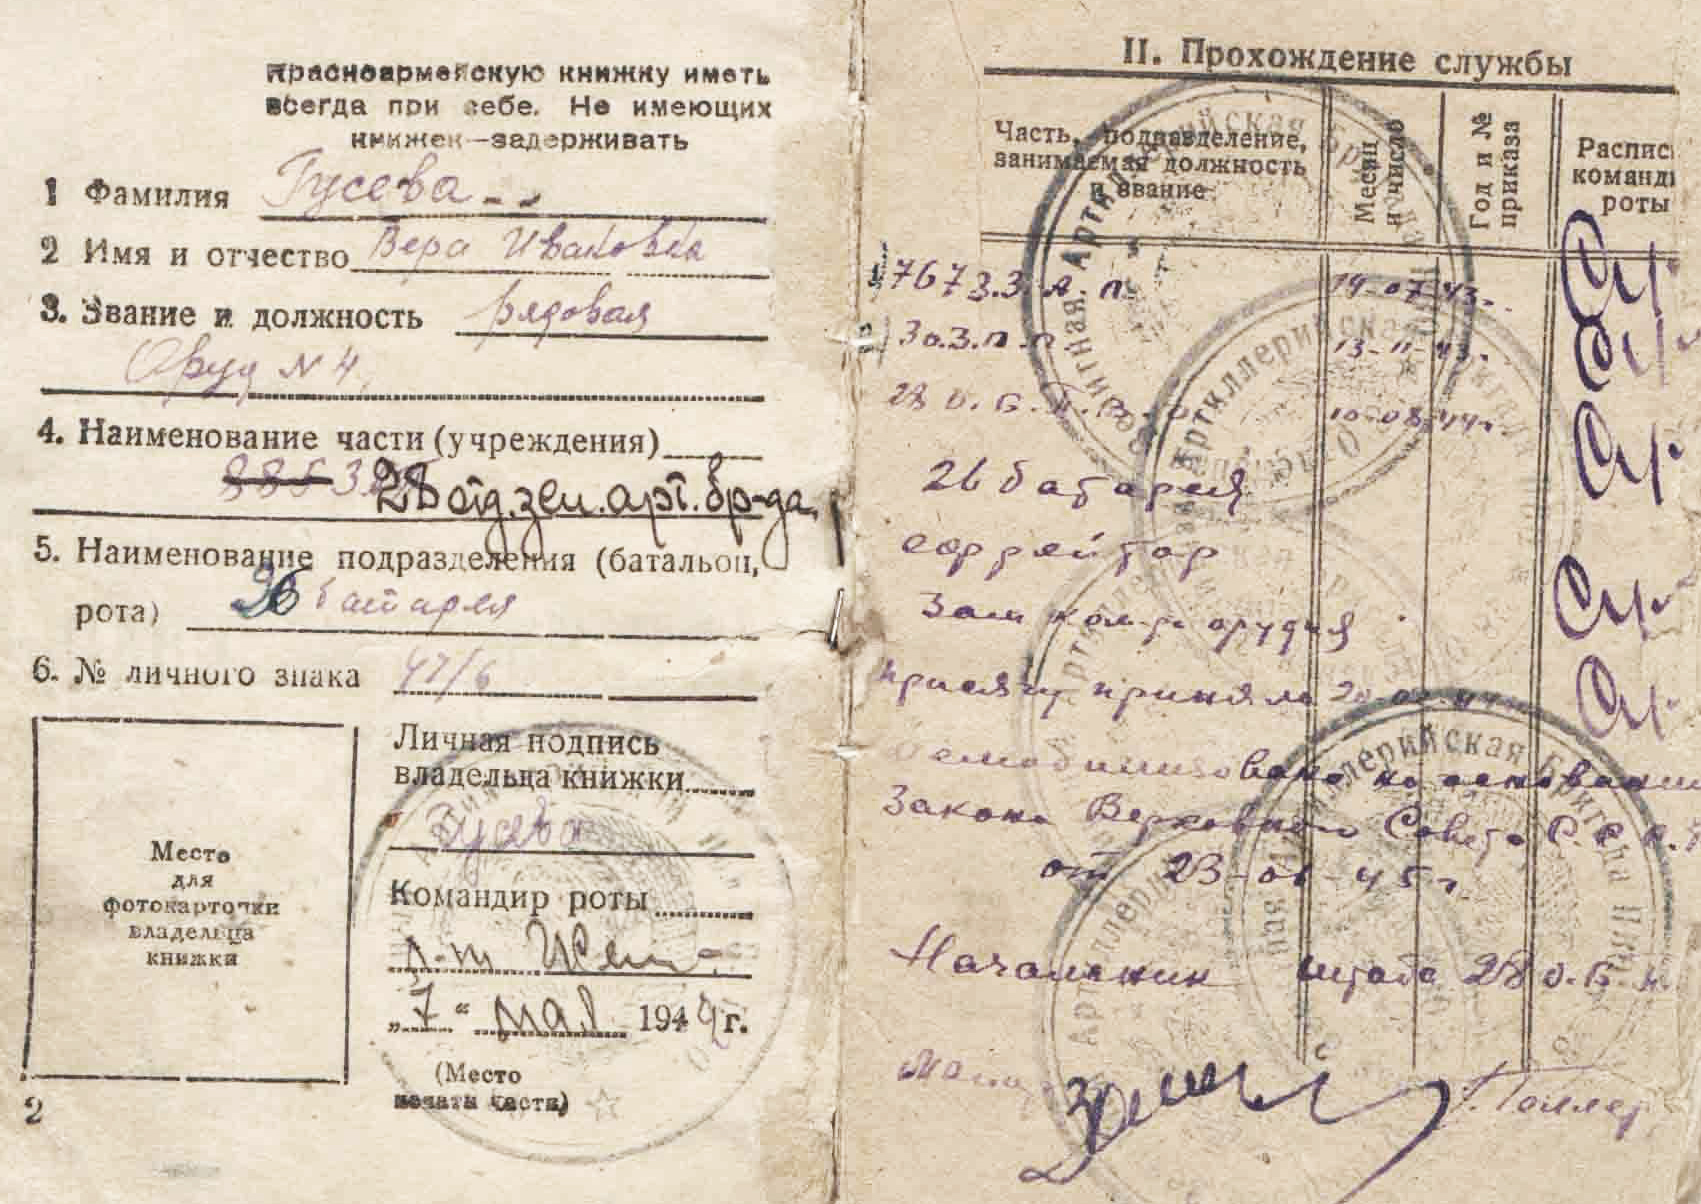 Красноармейскую книжку иметь
всегда при себе. Не имеющих
книжек—задерживать
1 Фамилия Гусева
2 Имя и отчество Вера Ивановна
3. Звание и должность рядовая
Оруд N 4
4. Наименование части (учреждения)
885 28 отд. зен. арт. бр-да
5. Наименование подразделения (батальон,
рота) 26 батарея
6. № личного знака 47/6
Личная подпись
владельца книжки
Гусева
Командир роты
л-т
„7“ мая 1944 г.
(Место
печати части)
Место
для
фотокарточки
владельца
книжки
2
II. Прохождение службы
Часть, подразделение,
занимаемая должность
и звание
Месяц
и число
Год и №
приказа
Распис
команди
роты
1) 767 З.З.А.П. 19-07-43г.
2) Зо.З.П.П 13-11-43г.
28 О.Б.П.В.О 10-08-44г.
26 батарея
ефрейтор
Зам ком-р орудия
присягу приняла
Демобилизована на основании
Закона Верховного Совета С.С.С.Р
от 23-06-45г.
Начальник штаба 28 О.Б.
Майор Геллер
Зенитная Артиллерийская Бригада ПВО
Артиллерийская Бригада
Артиллерийская Бригада ПВО